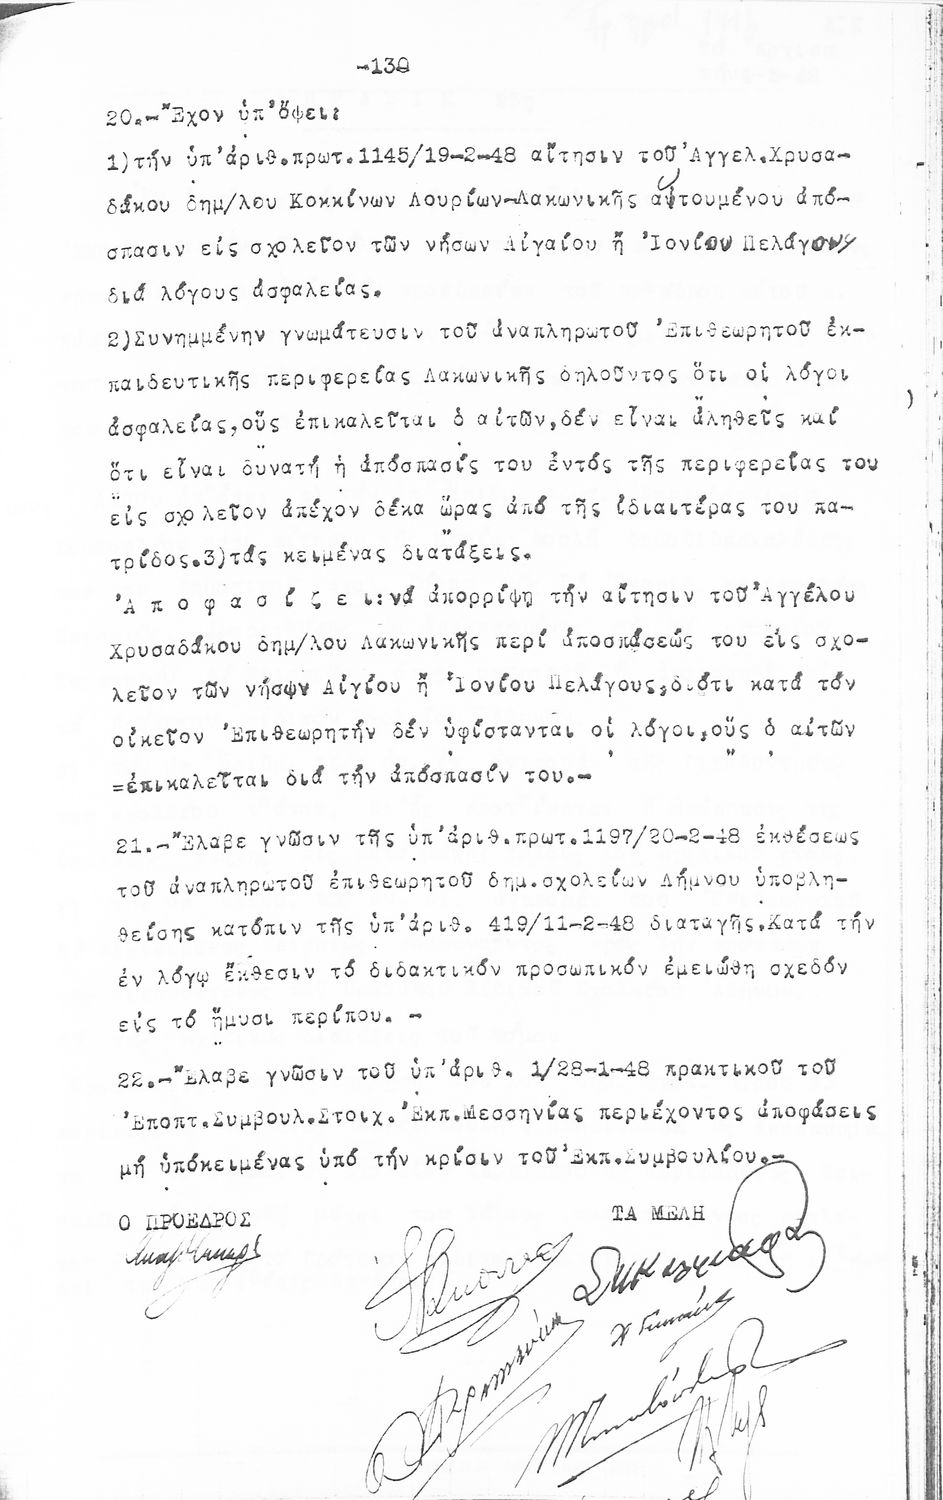 -130
20.-Ἔχον ὑπ'ὄψει:
1)τήν ὑπ'ἀριθ.πρωτ.1145/19-2-48 αἴτησιν τοῦ Ἀγγελ.Χρυσα-
δάκου δημ/λου Κοκκίνων Λουρίων-Λακωνικῆς αἰτουμένου ἀπό-
σπασιν εἰς σχολεῖον τῶν νήσων Αἰγαίου ἤ Ἰονίου Πελάγους
διά λόγους ἀσφαλείας.
2)Συνημμένην γνωμάτευσιν τοῦ ἀναπληρωτοῦ Ἐπιθεωρητοῦ ἐκ-
παιδευτικῆς περιφερείας Λακωνικῆς δηλοῦντος ὅτι οἱ λόγοι
ἀσφαλείας,οὕς ἐπικαλεῖται ὁ αἰτῶν,δέν εἶναι ἀληθεῖς καί
ὅτι εἶναι δυνατή ἡ ἀπόσπασίς του ἐντός τῆς περιφερείας του
εἰς σχολεῖον ἀπέχον δέκα ὥρας ἀπό τῆς ἰδιαιτέρας του πα-
τρίδος.3)τάς κειμένας διατάξεις.
Ἀ π ο φ α σ ί ζ ε ι:νά ἀπορρίψῃ τήν αἴτησιν τοῦ Ἀγγέλου
Χρυσαδάκου δημ/λου Λακωνικῆς περί ἀποσπάσεώς του εἰς σχο-
λεῖον τῶν νήσων Αἰγίου ἤ Ἰονίου Πελάγους,διότι κατά τόν
οἰκεῖον Ἐπιθεωρητήν δέν ὑφίστανται οἱ λόγοι,οὕς ὁ αἰτῶν
=ἐπικαλεῖται διά τήν ἀπόσπασίν του.-
21.-Ἔλαβε γνῶσιν τῆς ὑπ'ἀριθ.πρωτ.1197/20-2-48 ἐκθέσεως
τοῦ ἀναπληρωτοῦ ἐπιθεωρητοῦ δημ.σχολείων Λήμνου ὑποβλη-
θείσης κατόπιν τῆς ὑπ'ἀριθ. 419/11-2-48 διαταγῆς.Κατά τήν
ἐν λόγῳ ἔκθεσιν τό διδακτικόν προσωπικόν ἐμειώθη σχεδόν
εἰς τό ἥμυσι περίπου. -
22.-Ἔλαβε γνῶσιν τοῦ ὑπ'ἀριθ. 1/28-1-48 πρακτικοῦ τοῦ
Ἐποπτ.Συμβουλ.Στοιχ.Ἐκπ.Μεσσηνίας περιέχοντος ἀποφάσεις
μή ὑποκειμένας ὑπό τήν κρίσιν τοῦ Ἐκπ.Συμβουλίου.-
Ο ΠΡΟΕΔΡΟΣ ΤΑ ΜΕΛΗ